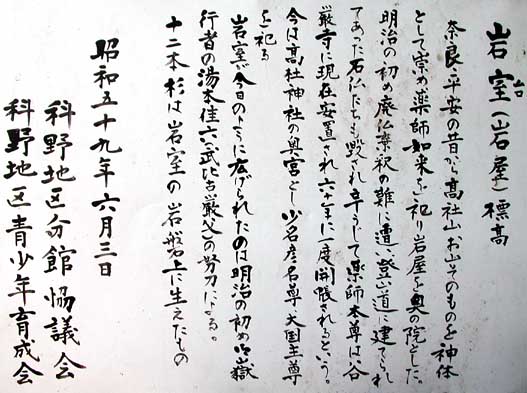 岩室(岩屋)標高
奈良・平安の昔から高社山お山そのものを神体
として崇め薬師如来を祀り岩屋を奥の院とした。
明治の初め廃仏棄釈の難に遭い登山道に建てられ
てあった石仏たちも毀され辛うじて薬師本尊は、谷
厳寺に現在安置され六十年に一度開帳されるという。
今は高社神社の奥宮とし少名彦名尊、大国主尊
を祀る
岩室が今日のように広げられたのは明治の初め御嶽
行者の湯本佳六、武比古、厳父の努力による。
十二本杉は岩室の岩盤上に生えたもの
昭和五十九年六月三日
科野地区分館協議会
科野地区青少年育成会